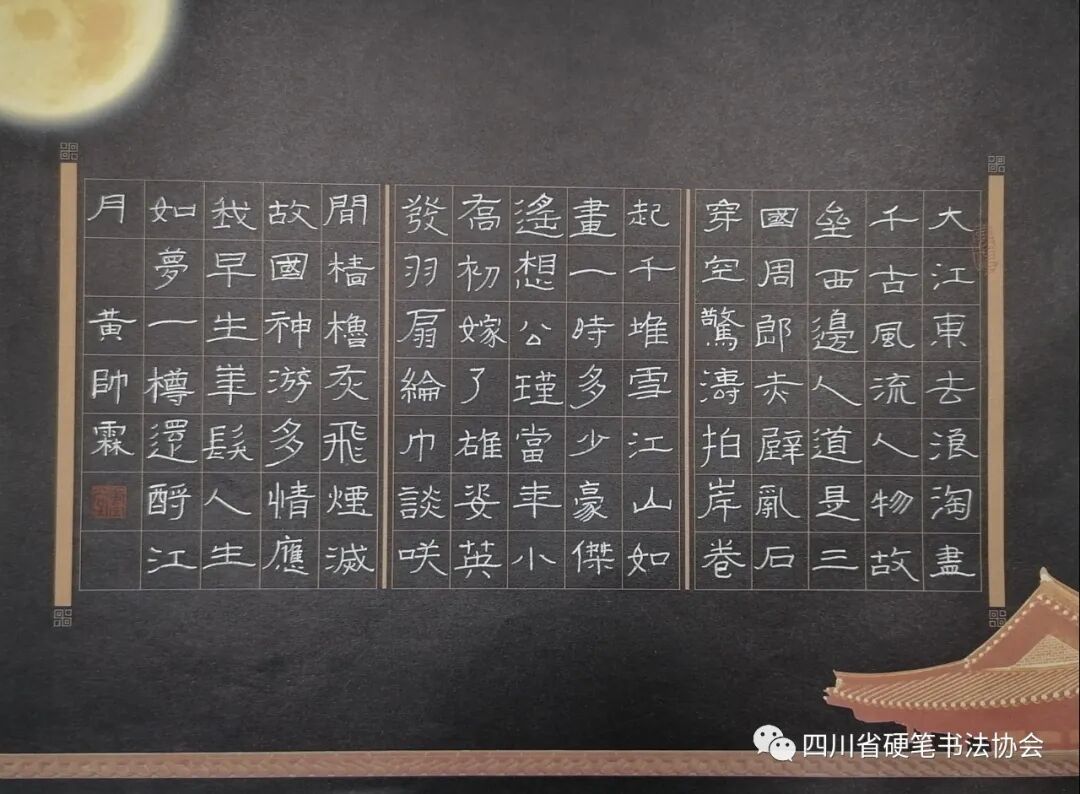 大江東去浪淘盡
千古風流人物故
垒西邊人道是三
國周郎赤壁亂石
穿空驚濤拍岸卷
起千堆雪江山如
畫一時多少豪傑
遙想公瑾當年小
喬初嫁了雄姿英
發羽扇綸巾談咲
間檣櫓灰飛煙滅
故國神游多情應
我早生華髮人生
如夢一樽還酹江
月 黃帥霖
四川省硬笔书法协会